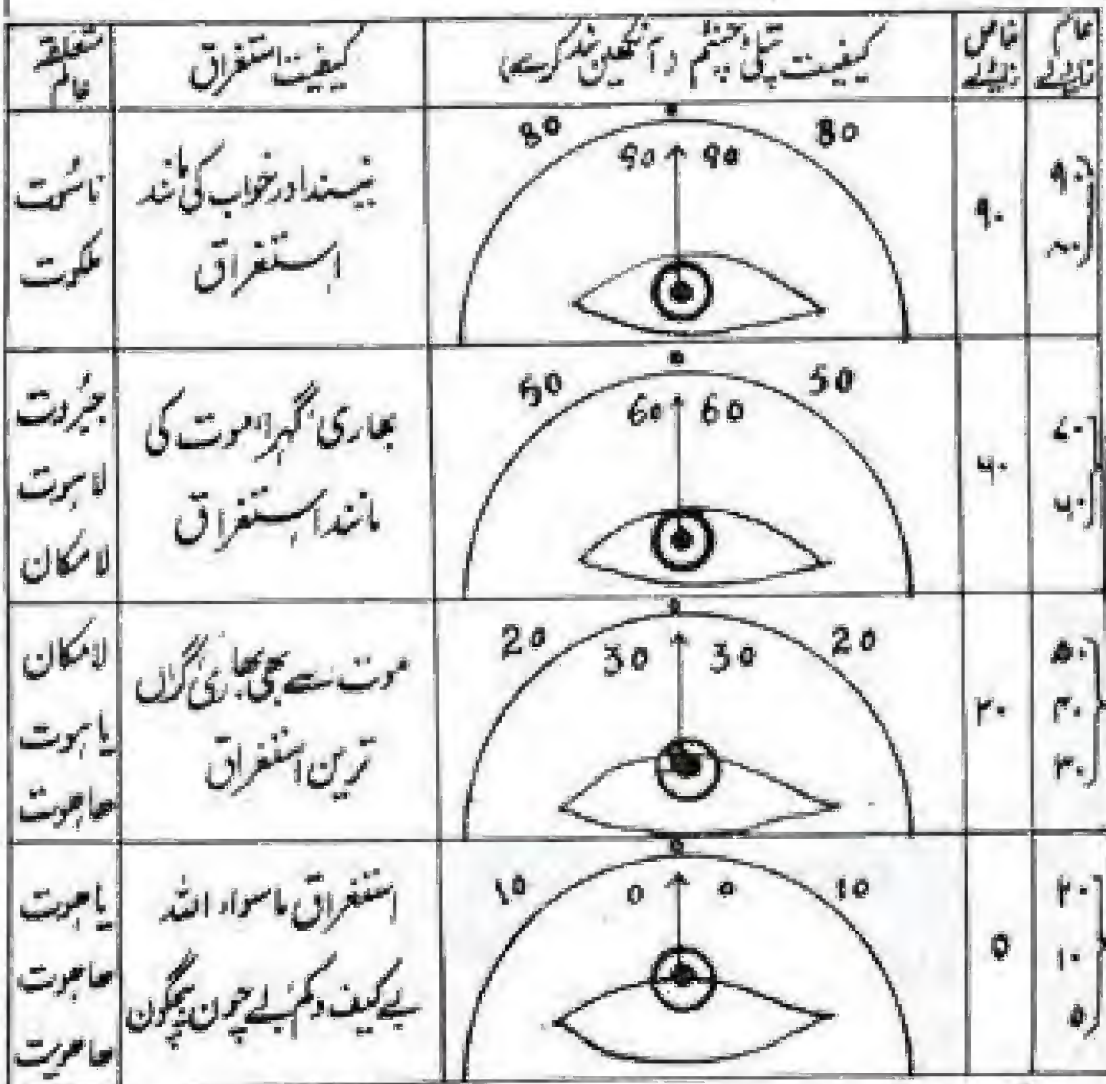 عام زاویے
خاص زاویے
کیفیت پتلی چشم (آنکھیں بند کر کے)
کیفیت استغراق
متعلقہ عالم
۹۰
۸۰
۹۰
80 80
90 90
نیند اور خواب کی مانند
استغراق
ناسُوت
ملکوت
۷۰
۶۰
۶۰
50 50
60 60
بھاری، گہرا، موت کی
مانند استغراق
جبرُوت
لاہوت
لامکان
۵۰
۴۰
۳۰
۳۰
20 20
30 30
موت سے بھی بھاری گراں
ترین استغراق
لامکان
یاہوت
ھاھوت
۲۰
۱۰
۵
0
10 10
0 0
استغراق ماسواء اللہ
بے کیف و کم بے چون بیچگون
یاھوت
ھاھوت
ھاھویت